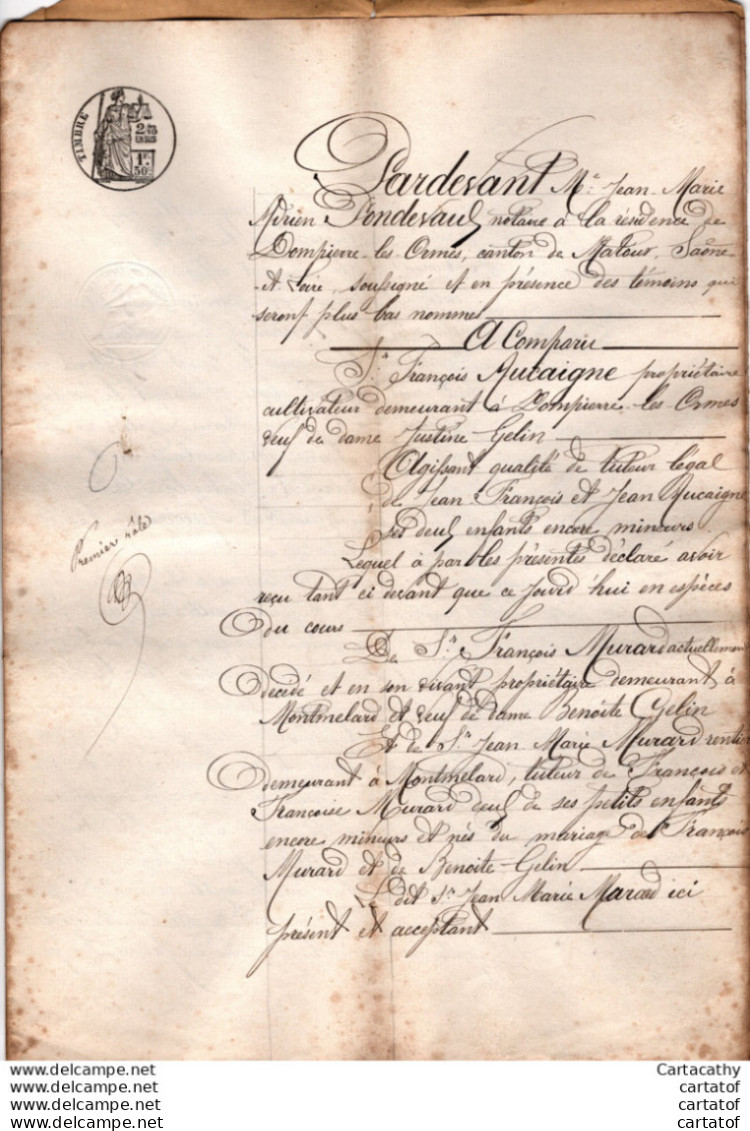 TIMBRE
1F
50C
Pardevant Me Jean-Marie
Adrien Dondevaul notaire à la résidence de
Dompierre-les-Ormes, canton de Matour, Saône
et Loire, soussigné et en présence des témoins qui
seront plus bas nommés
A Comparu
Sr. François Aucaigne propriétaire
cultivateur demeurant à Dompierre-les-Ormes
veuf de dame Justine Gelin
Agissant qualité de tuteur légal
de Jean-François et Jean Aucaigne
ses deux enfants encore mineurs.
Lequel à par les présentes déclaré avoir
reçu tant ci devant que ce jourd'hui en espèces
du cours
De Sr. François Murard actuellement
décédé et en son vivant propriétaire demeurant à
Montmelard et veuf de dame Benoite Gelin
Et de Sr. Jean Marie Murard rentier
demeurant à Montmelard, tuteur de François et
Françoise Murard deux de ses petits enfants
encore mineurs et nés du mariage de François
Murard et de Benoite-Gelin
Le dit Sr. Jean Marie Murard ici
présent et acceptant
Premier rôle
Cartacathy
https://www.delcampe.net cartatof
https://www.delcampe.net cartatof
https://www.delcampe.net cartatof